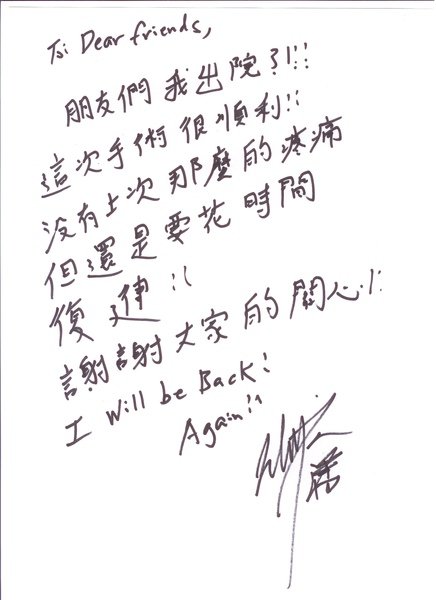 To: Dear friends,
朋友們 我出院了!!!
這次手術很順利!!
沒有上次那麼的疼痛
但還是要花時間
復健!!
謝謝大家的關心!!
I will be Back!
Again!!